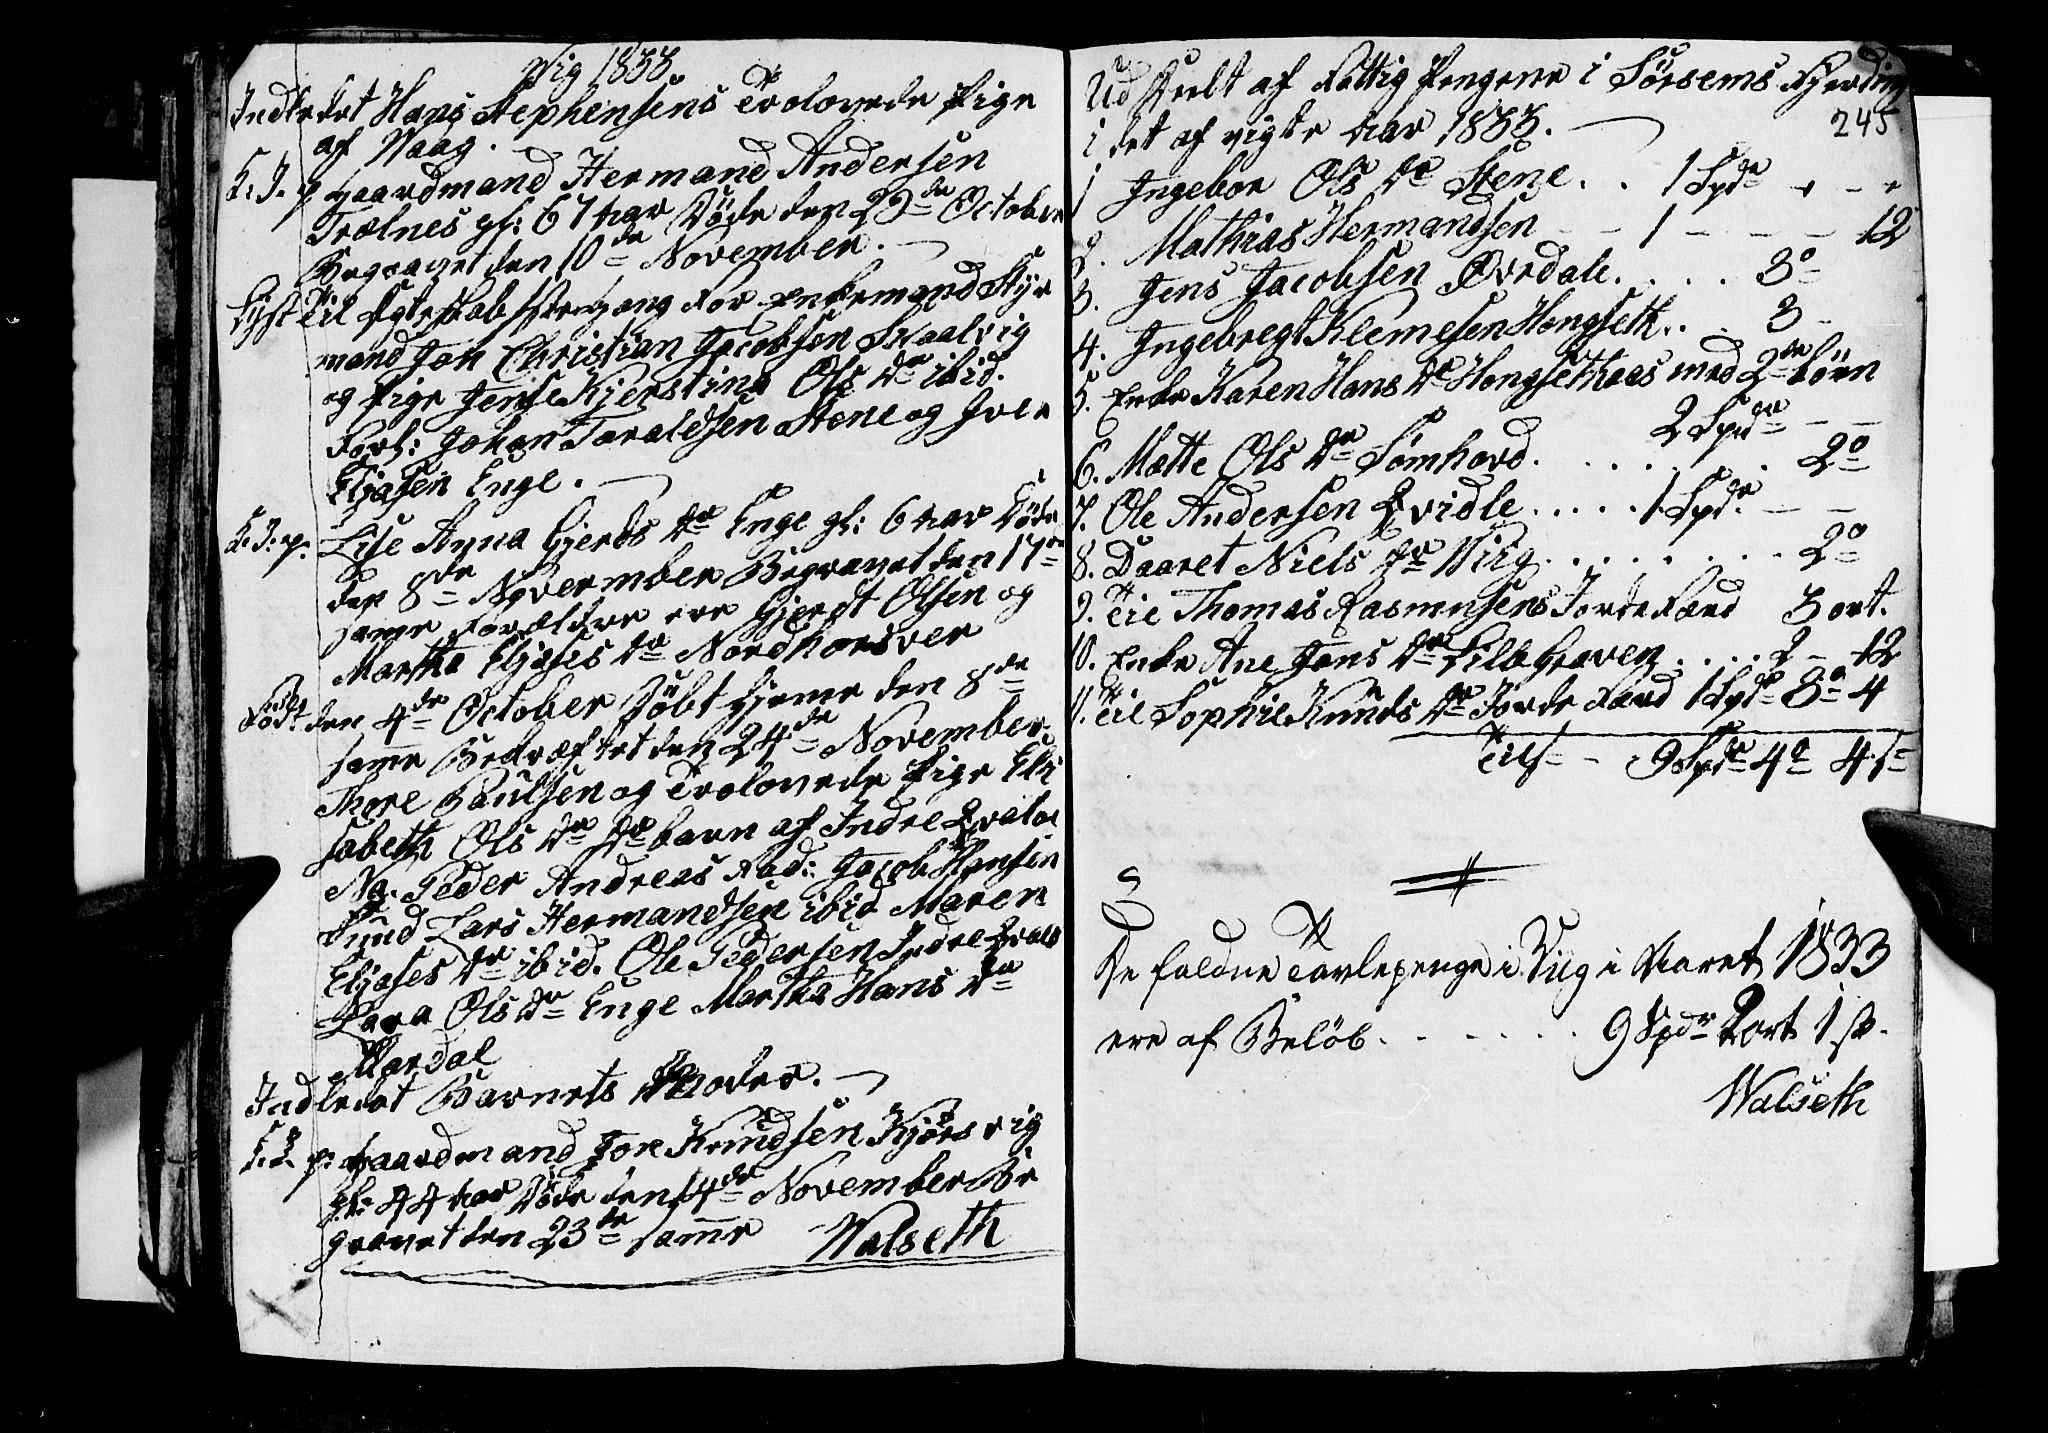 Vig 1833.
Indledet Hans Stephensens Trolovede Pige
af Waag.
S. J. p. Gaardmand Hermand Andersen
Trælnes gl: 67 aar Døde den 29de October
Begravet den 10de November.
Lyst Til Egteskab 1ste gang for Enkemand Styr
mand Jon Christian Jacobsen Skaalvig
og Pige Jense Kjerstina Ols Dr ibid.
Forl: Johan Taraldsen Stene og Iver
Eljasen Enge.
S. J. p. Lise Anna Gjerds Dr Enge gl: 6 aar Døde
den 8de November Begravet den 17de
samme Forældre ere Gjerdt Olsen og
Martha Eljases Dr Nordhorsver
Født den 4de October Døbt hjeme den 8de
samme Bekræftet den 24de November.
Thore Paulsen og Trolovede Pige Eli
sabeth Ols Dr Dr barn af Indre Qvaløe
Na. Peder Andreas Fad: Jacob Hansen
Sund Lars Hermandsen ibid Maren
Eljases Dr ibid. Ole Pedersen Indre Qvalø
Lava Ols Dr Enge Martha Hans Dr
Mardal
Indledet Barnets Moder.
S. J. p. Gaardmand Jon Knudsen Kjørsvig
gl: 44 aar Døde den 14de November Be
gravet den 23de samme Walseth
Uddeelt af Fattig Pengene i Sörsems Fjerding
245
i det af vigte aar 1833.
1 Ingebor Ols Dr Stene. . 1 Spdr - - -
2. Mathias Hermandsen - - 1 - - - 12
3. Jens Jacobsen Øvrdale. . . . 3o
4. Ingebregt Klemesen Hongseth. . . 3 -
5. Enke Karen Hans Dr Hongsethaas med 2de børn
2 Spdr - -
6. Mette Ols Dr Sømhovd. . . . . . . 2o
7. Ole Andersen Qvidle. . . . . 1 Spdr - -
8. Daaret Niels Dr Viig. . . . . . . . 2o
9. Til Thomas Rasmusens Jordefærd 3 ort.
10. Enke Ane Jans Dr Lilb Graven . . . . 2 - 12
11. Til Sophie Knuds Dr Jorde færd 1 Spdr 3o 4
Tils - 9 Spdr 4o 4 s
De faldne Tavlepenge i Viig i Aaret 1833
ere af Beløb. - - - - - . 9 Spdr 2 ort 1 s.
Walseth